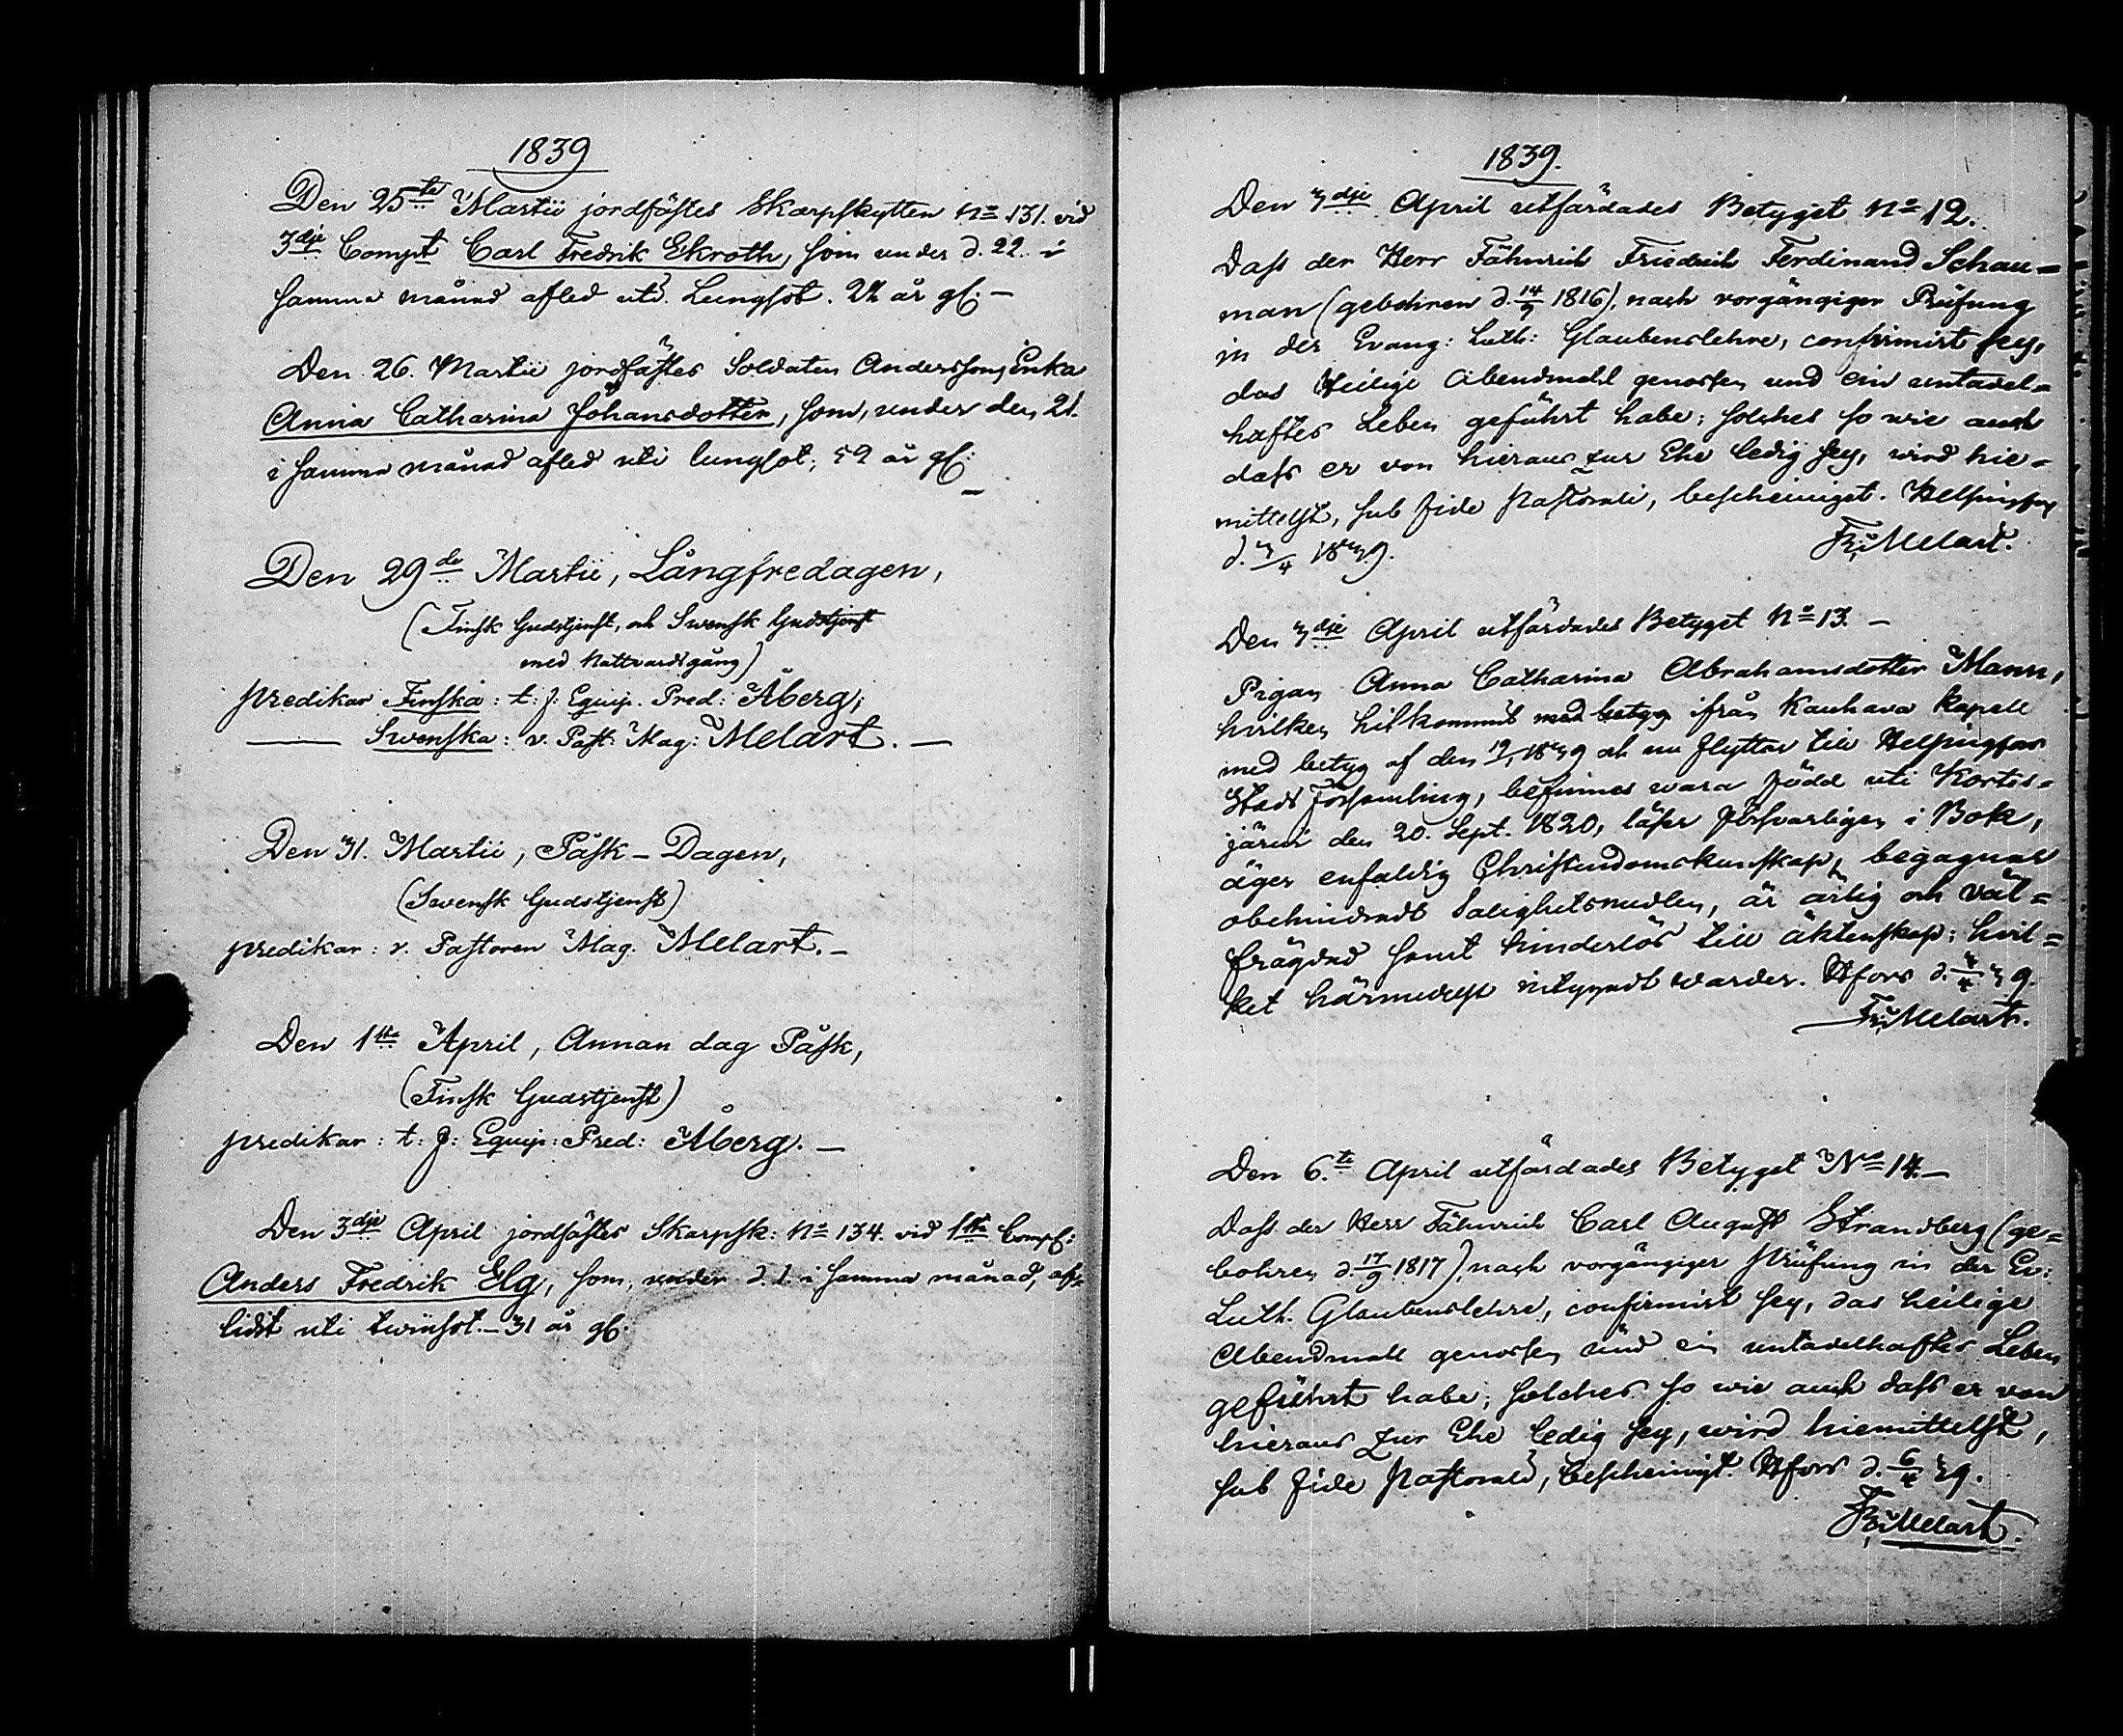 1839
Den 25te Martii jordfästes Skarpskytten No 131. vid
3dje Compt Carl Fredrik Ekroth, som under d. 22. i
samma månad afled uti Lungsot. 24 år gl: —
Den 26. Martii jordfästes Soldaten Anderssons Enka
Anna Catharina Johansdotter, som, under den 21.
i samma månad afled uti lungsot; 59 år gl: —
Den 29de Martii, Långfredagen,
(Finsk Gudstjenst, och Swensk Gudstjenst
med Nattvardsgång)
predikar Finska: t: f: Equip. Pred: Åberg;
—— Swenska: v. Past: Mag: Melart. —
Den 31. Martii, Påsk-Dagen,
(Swensk Gudstjenst)
predikar: v. Pastoren Mag. Melart. —
Den 1sta April, Annan dag Påsk,
(Finsk Gudstjenst)
predikar: t: f: Equip: Pred: Åberg. —
Den 3dje April jordfästes Skarpsk: No 134. vid 1sta Comp:
Anders Fredrik Elg, som, under d. 1. i samma månad, af-
lidit uti twinsot. — 31 år gl.
1839.
Den 3dje April utfärdades Betyget No 12.
Dass der Herr Fähnrich Friedrich Ferdinand Schau=
man (gebohren d. 14/3 1816), nach vorgängiger Prüfung
in der Evang: Luth: Glaubenslehre, confirmirt sey,
das Heilige Abendmahl genossen und ein untadel=
haftes Leben geführt habe; solches so wie auch
dass er von hieraus zur Ehe ledig sey, wird hie=
mittelst, sub fide pastorali, bescheiniget. Helsingfors
d. 3/4 1839.
Fr: Melart.
Den 3dje April utfärdades Betyget No 13. —
Pigan Anna Catharina Abrahamsdotter Mann,
hvilken hitkommit med betyg ifrån Kauhava Kapell
med betyg af den 19/1 1839 och nu flyttar till Helsingfors
Stads Församling, befinnes wara född uti Kortes=
järvi den 20. Sept. 1820, läser försvarligen i Bok,
äger enfaldig Christendomskunskap, begagnar
obehindradt Salighetsmedlen, är ärlig och väl=
frägdad samt hinderlös till äktenskap; hvil=
ket härmedelst intygadt warder. Hfors d. 3/4 39.
Fr: Melart.
Den 6.te April utfärdades Betyget No 14. —
Dass der Herr Fähnrich Carl August Strandberg (ge=
bohren d. 17/9 1817), nach vorgängiger Prüfung in der Ev:
Luth. Glaubenslehre, confirmirt sey, das heilige
Abendmahl genossen und ein untadelhaftes Leben
geführt habe; solches so wie auch dass er von
hieraus zur Ehe ledig sey, wird hiemittelst,
sub fide pastorali, bescheinigt. Hfors d. 6/4 39.
Fr: Melart.